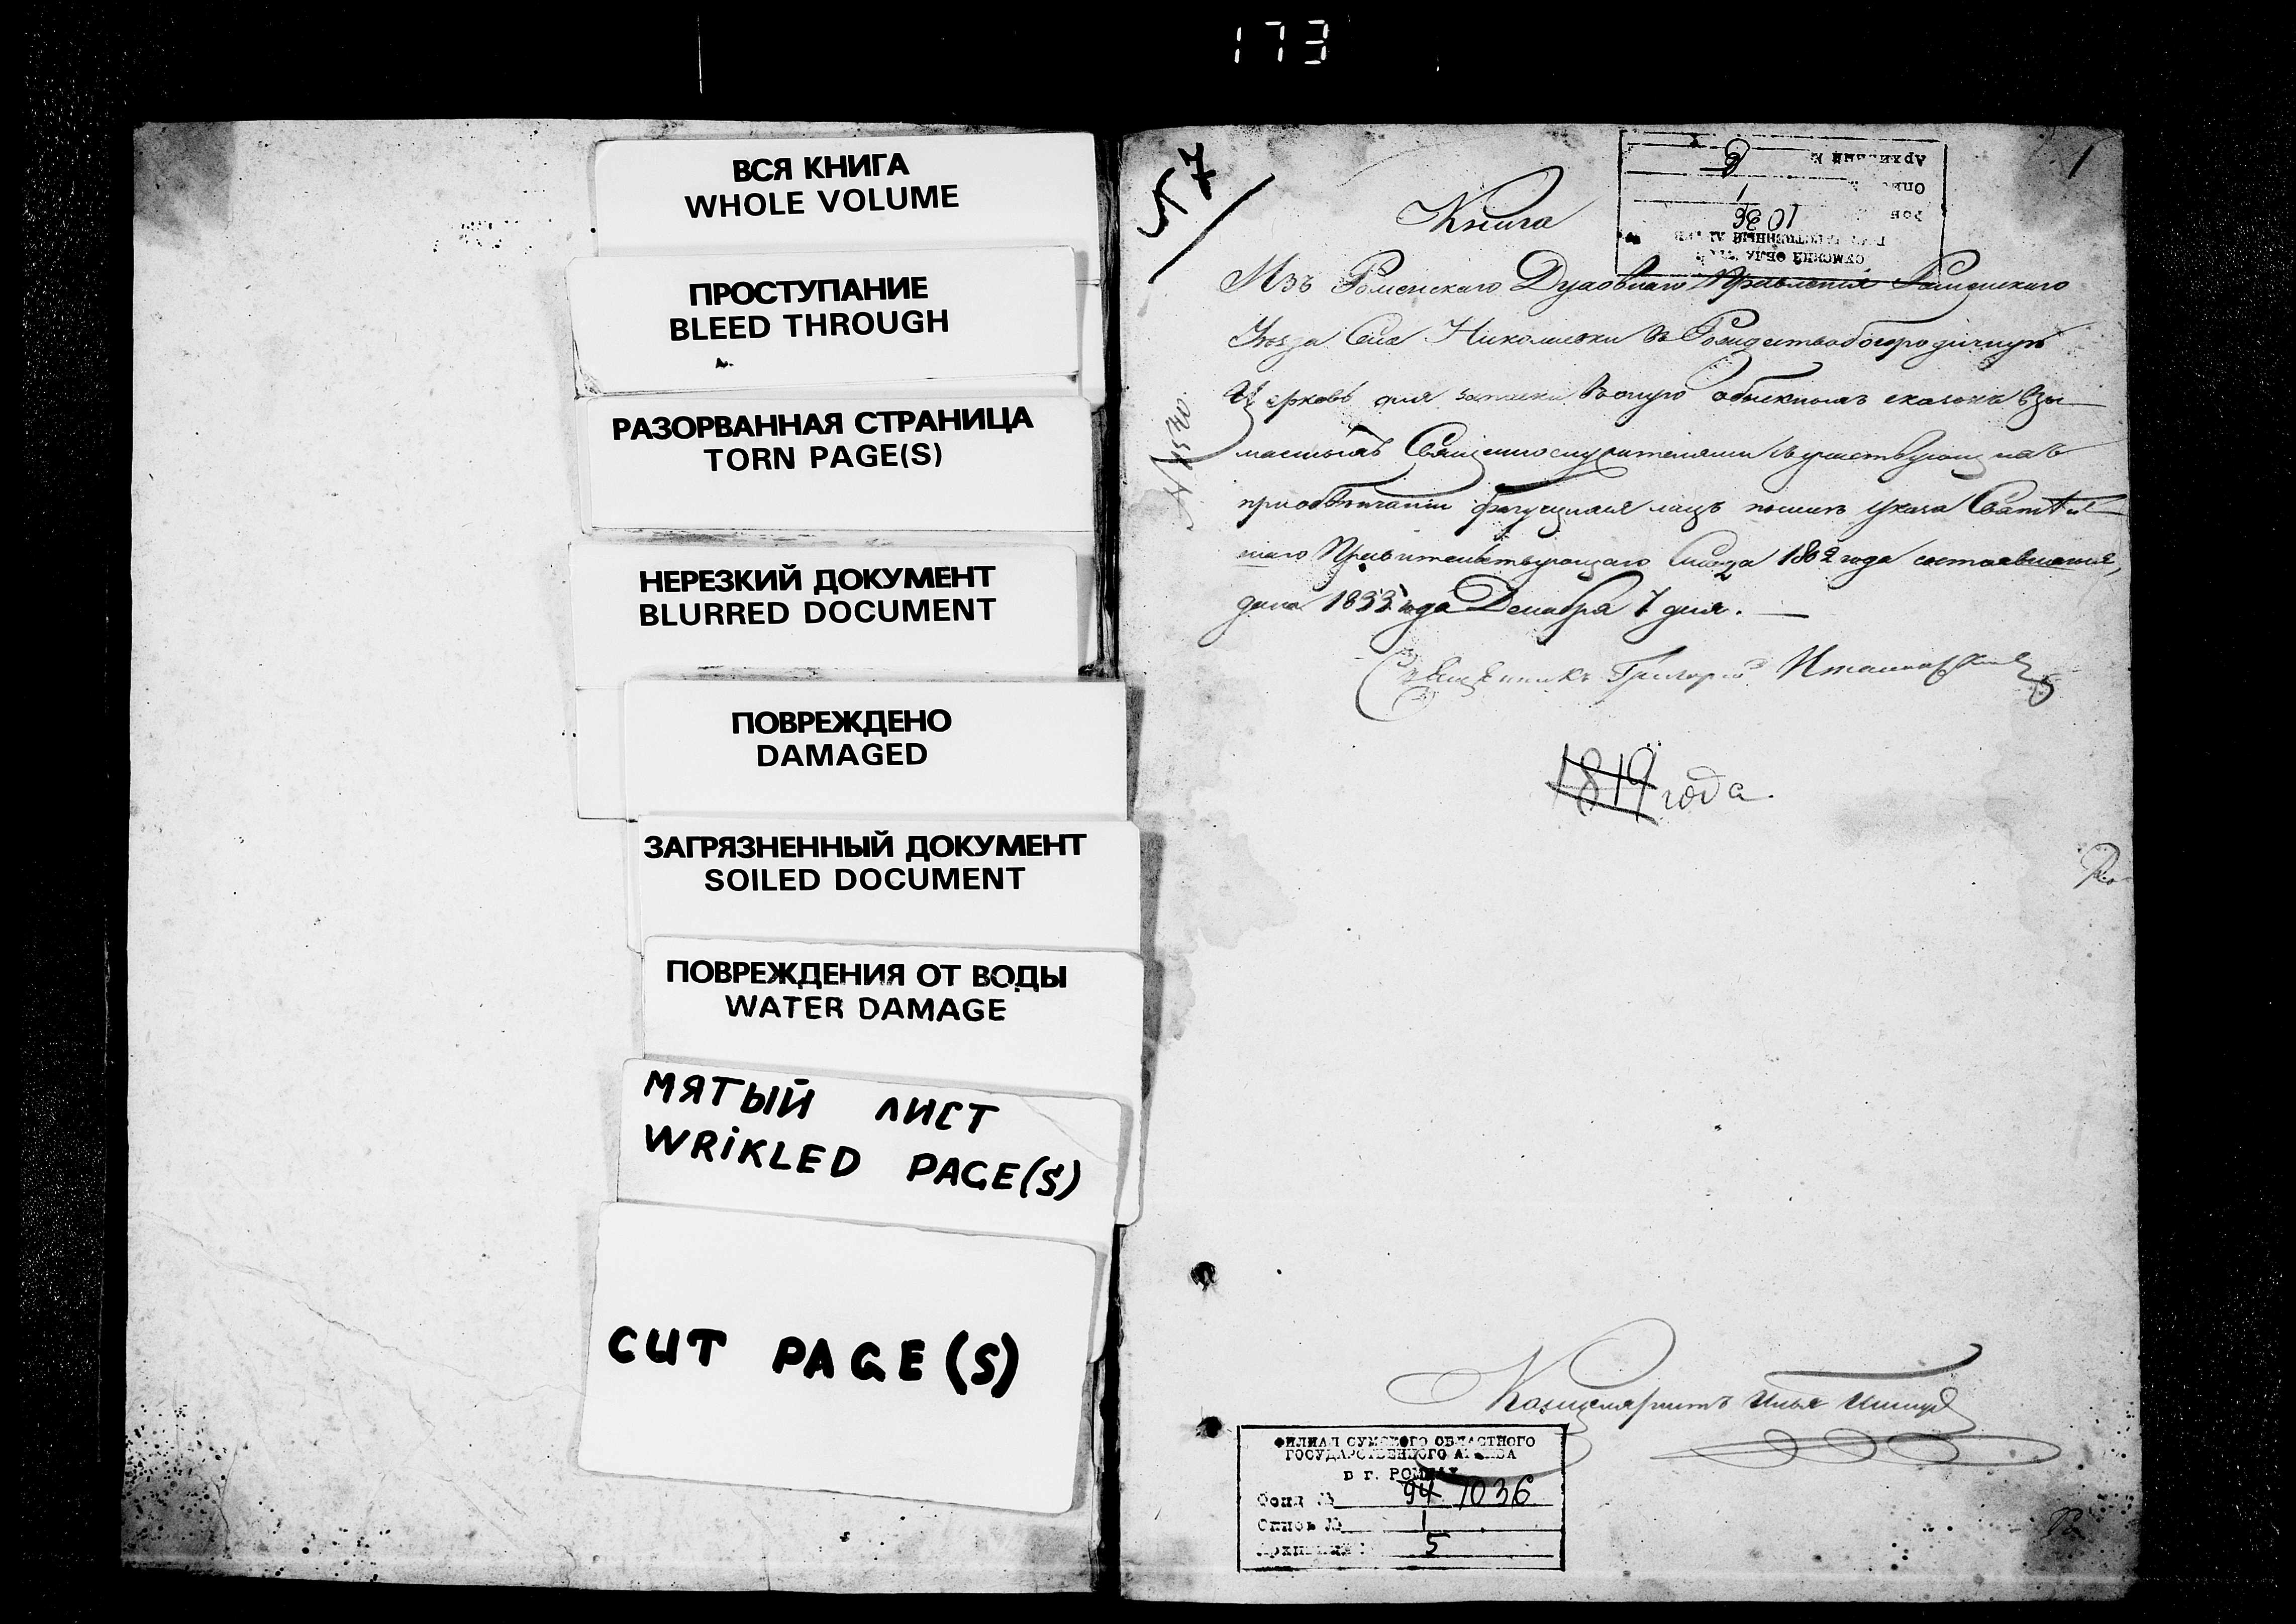 173
ВСЯ КНИГА
WHOLE VOLUME
ПРОСТУПАНИЕ
BLEED THROUGH
РАЗОРВАННАЯ СТРАНИЦА
TORN PAGE(S)
НЕРЕЗКИЙ ДОКУМЕНТ
BLURRED DOCUMENT
ПОВРЕЖДЕНО
DAMAGED
ЗАГРЯЗНЕННЫЙ ДОКУМЕНТ
SOILED DOCUMENT
ПОВРЕЖДЕНИЯ ОТ ВОДЫ
WATER DAMAGE
МЯТЫЙ ЛИСТ
WRiKLED PAGE(S)
CUT PAGE(S)
N 7
1
Книга
Изъ Роменскаго Духовнаго Правленія Роменскаго
Уѣзда Села Николаевки въ Рождествобогородичную
Церковь для записки въ оную обыскныхъ
Священнослужителями
при обвѣнчаніи лицъ указа Святѣй
шаго Правительствующаго Синода 1802 года
дана 1833 года Декабря 7 дня.
Священникъ Григорій
1819 года.
Канцеляристъ Илья
СУМСКИЙ ОБЛАСТНОЙ
1036
1
ФИЛИАЛ СУМСКОГО ОБЛАСТНОГО
ГОСУДАРСТВЕННОГО АРХИВА
в г. РОМНАХ
Фонд № 94 1036
Опись № 1
5